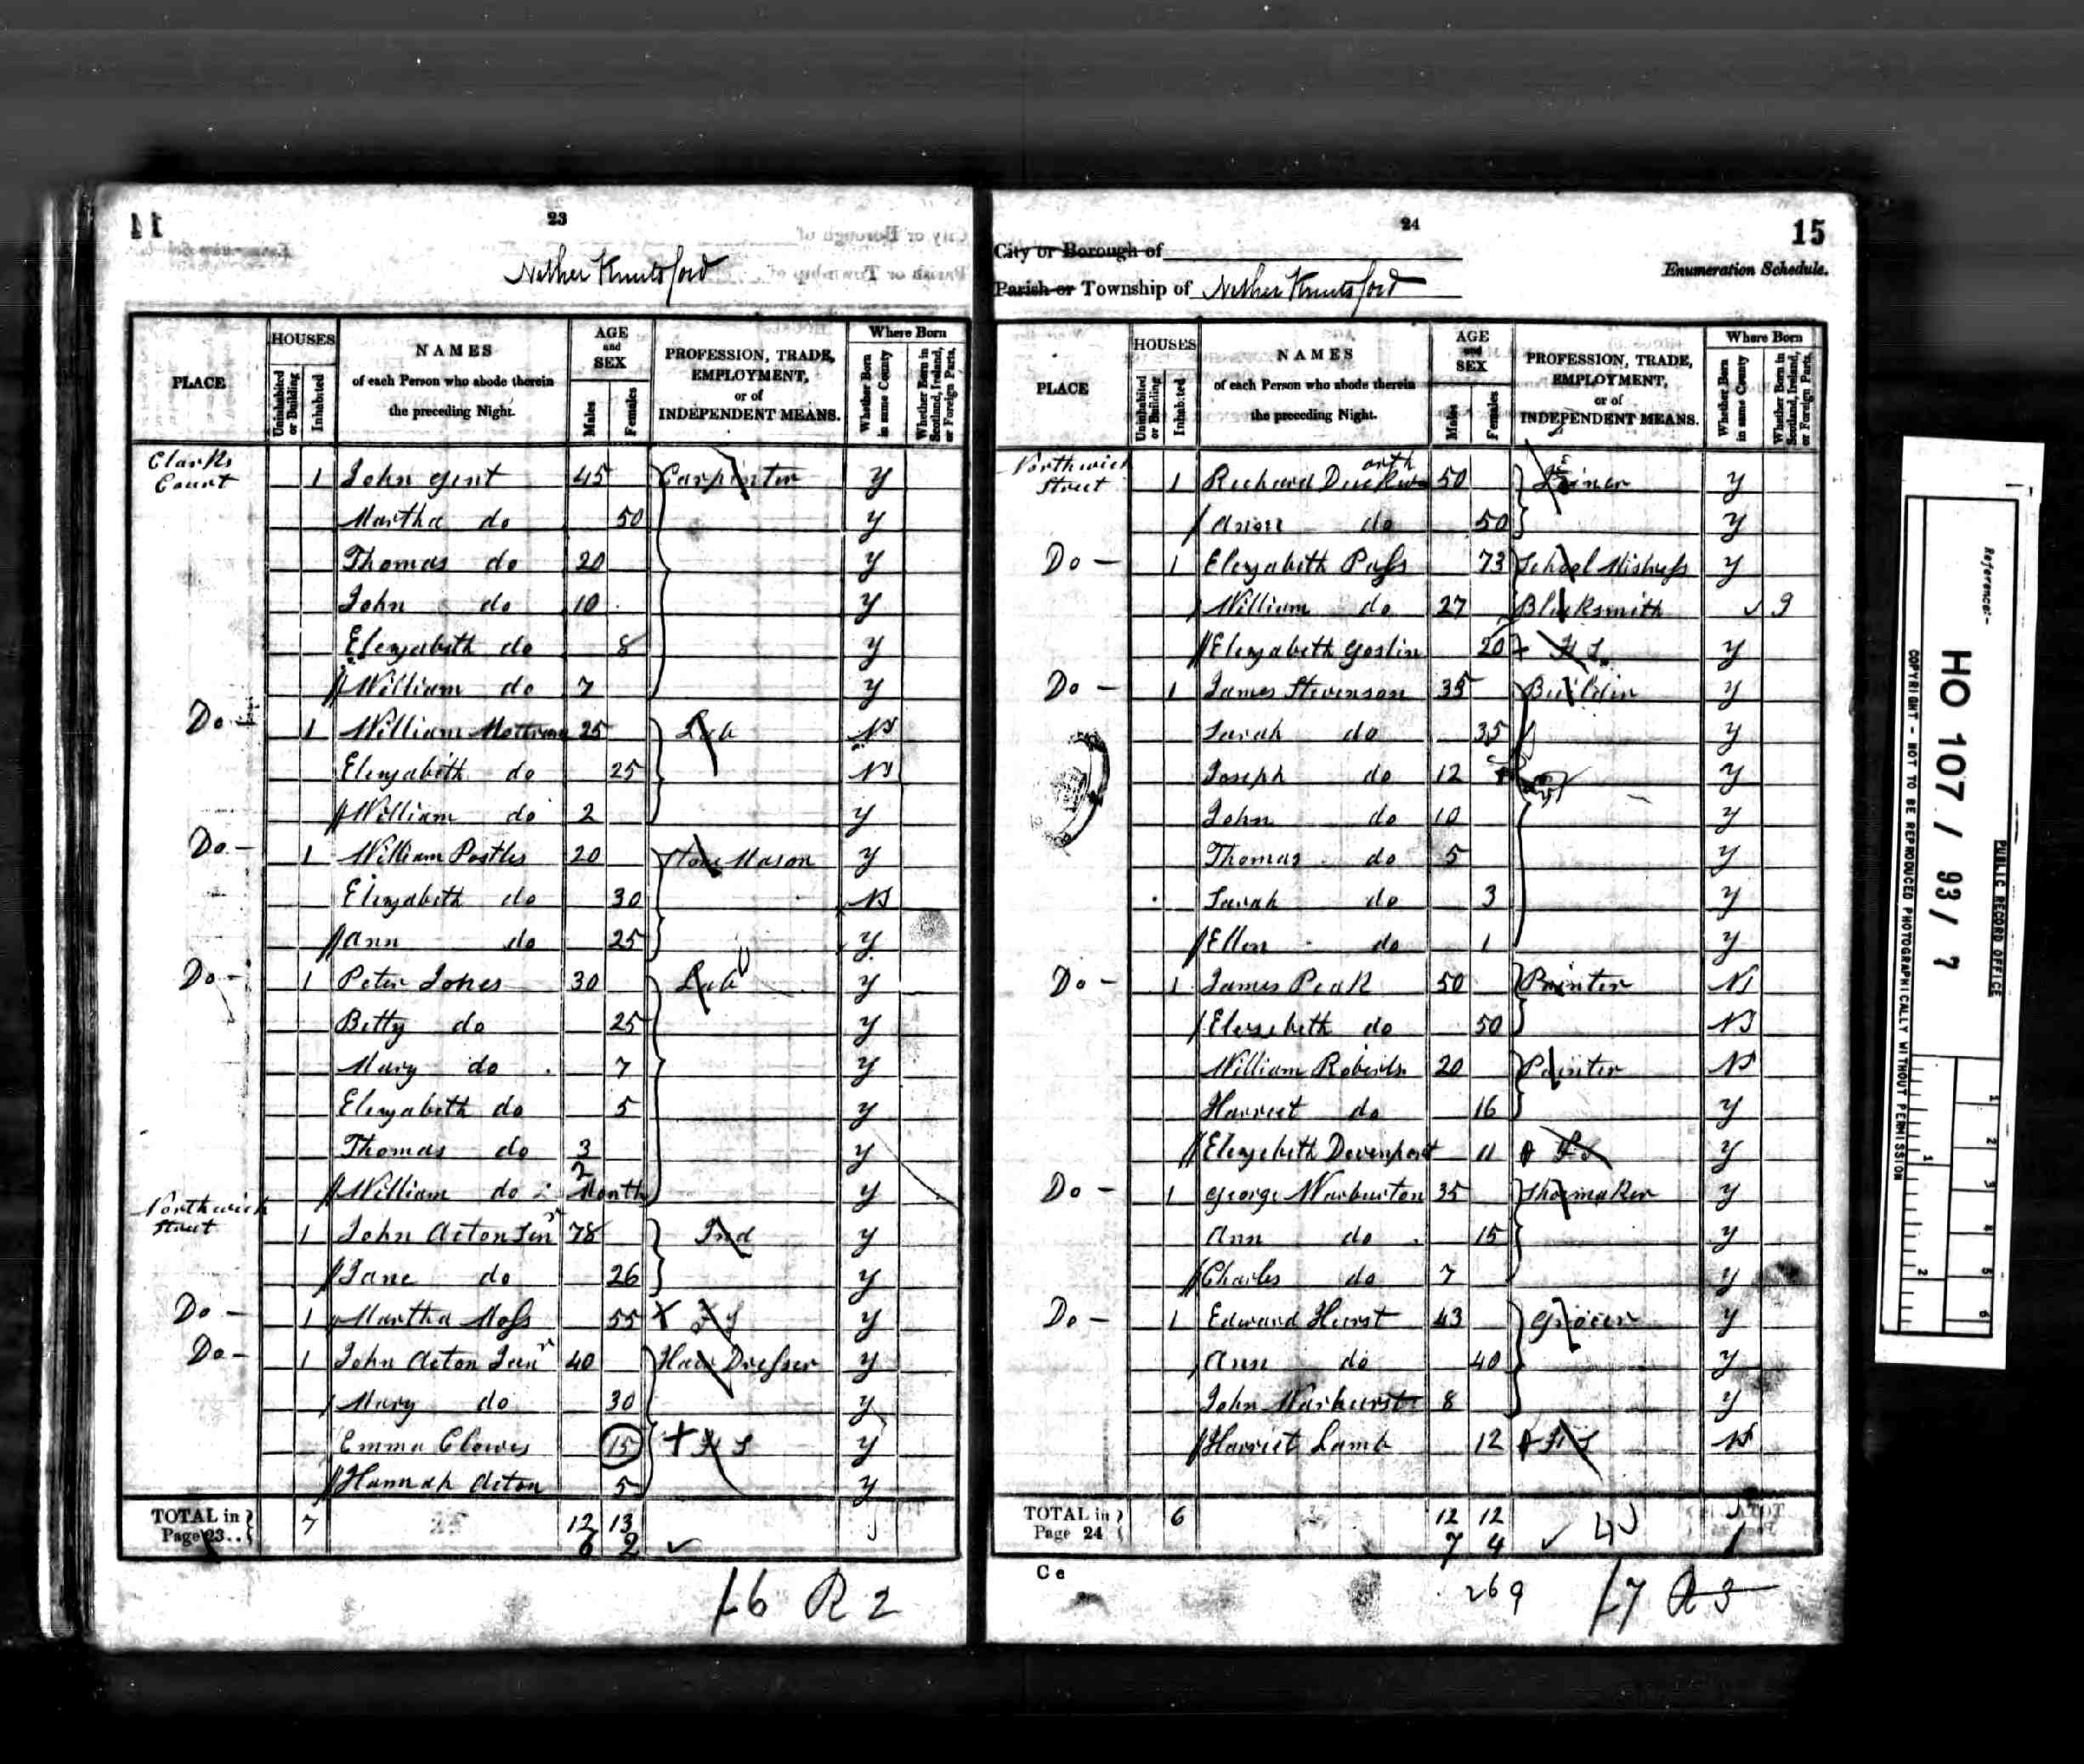 23
Nether Knutsford
PLACE
HOUSES
Uninhabited or Building
Inhabited
NAMES
of each Person who abode therein
the preceding Night.
AGE
and
SEX
Males
Females
PROFESSION, TRADE,
EMPLOYMENT,
or of
INDEPENDENT MEANS.
Where Born
Whether Born in same County
Whether Born in Scotland, Ireland, or Foreign Parts.
Clarks Court 1 John Gent 45 Carpinter y
Martha do 50 y
Thomas do 20 y
John do 10 y
Elezabeth do 8 y
William do 7 y
Do 1 William Mottram 25 Lab N
Elezabeth do 25 N
William do 2 y
Do - 1 William Postles 20 Stone Mason y
Elezabeth do 30 N
Ann do 25 y
Do - 1 Peter Jones 30 Lab y
Betty do 25 y
Mary do 7 y
Elezabeth do 5 y
Thomas do 3 y
William do 2 Month y
Northwich Street 1 John Acton Senr 78 Ind y
Jane do 26 y
Do - 1 Martha Moss 55 y
Do - 1 John Acton Junr 40 Hair Dresser y
Mary do 30 y
Emma Clowes 15 F S y
Hannah Acton 5 y
TOTAL in Page 23.. 7 12 13
6 2
16 R 2
24
15
City or Borough of
Enumeration Schedule.
Parish or Township of Nether Knutsford
PLACE
HOUSES
Uninhabited or Building
Inhabited
NAMES
of each Person who abode therein
the preceding Night.
AGE
and
SEX
Males
Females
PROFESSION, TRADE,
EMPLOYMENT,
or of
INDEPENDENT MEANS.
Where Born
Whether Born in same County
Whether Born in Scotland, Ireland, or Foreign Parts.
Northwich Street 1 Richard Duckworth 50 Joiner y
Ann do 50 y
Do - 1 Elezabeth Pass 73 School Mistress y
William do 27 Blacksmith
Elezabeth Goslin 20 F S y
Do - 1 James Stevenson 35 y
Sarah do 35 y
Joseph do 12 y
John do 10 y
Thomas do 5 y
Sarah do 3 y
Ellen do 1 y
Do - 1 James Peak 50 Painter N
Elezebeth do 50 N
William Roberts 20 Painter N
Harriet do 16 y
Elezebeth Devenport 11 F S y
Do - 1 George Warburton 35 Shoemaker y
Ann do 15 y
Charles do 7 y
Do - 1 Edward Hurst 43 Grocer y
Ann do 40 y
John 8 y
Harriet Lamb 12 F S N
TOTAL in Page 24 6 12 12
7 4
Ce
269
17 R 3
Reference:-
HO 107 / 93 / 7
PUBLIC RECORD OFFICE
COPYRIGHT - NOT TO BE REPRODUCED PHOTOGRAPHICALLY WITHOUT PERMISSION
1 2 3 4 5 6
1 2